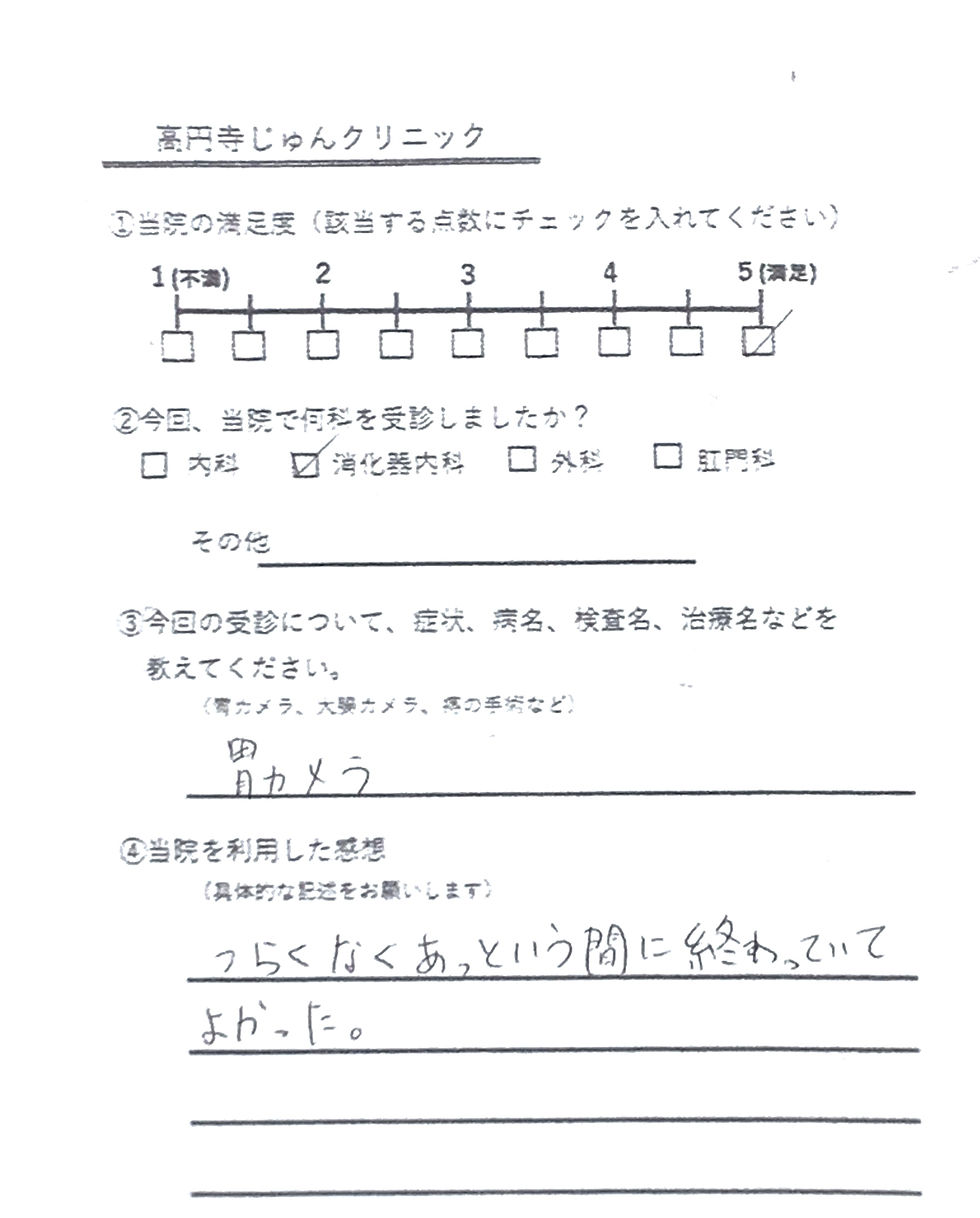 高円寺じゅんクリニック
①当院の満足度（該当する点数にチェックを入れてください）
1(不満) 2 3 4 5(満足)
②今回、当院で何科を受診しましたか？
□ 内科 ☑ 消化器内科 □ 外科 □ 肛門科
その他
③今回の受診について、症状、病名、検査名、治療名などを
教えてください。
（胃カメラ、大腸カメラ、痔の手術など）
胃カメラ
④当院を利用した感想
（具体的な記述をお願いします）
つらくなくあっという間に終わっていて
よかった。